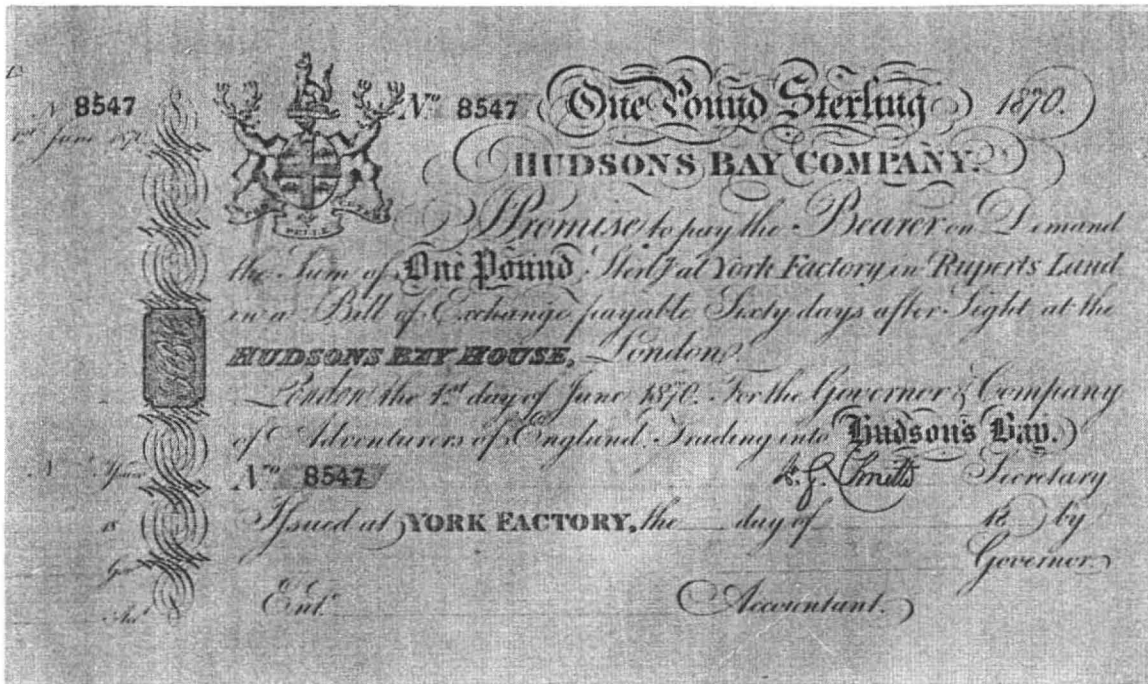 No 8547
1st June 1870
No 8547 One Pound Sterling 1870.
HUDSONS BAY COMPANY.
PELLE
I Promise to pay the Bearer on Demand
the Sum of One Pound Sterlg at York Factory in Ruperts Land
in a Bill of Exchange payable Sixty days after Sight at the
HUDSONS BAY HOUSE, London.
London the 1st day of June 1870. For the Governor & Company
of Adventurers of England Trading into Hudson's Bay.
No 8547 Secretary
Issued at YORK FACTORY, the day of 18 by
Governor.
Entd Accountant.
HBC
18